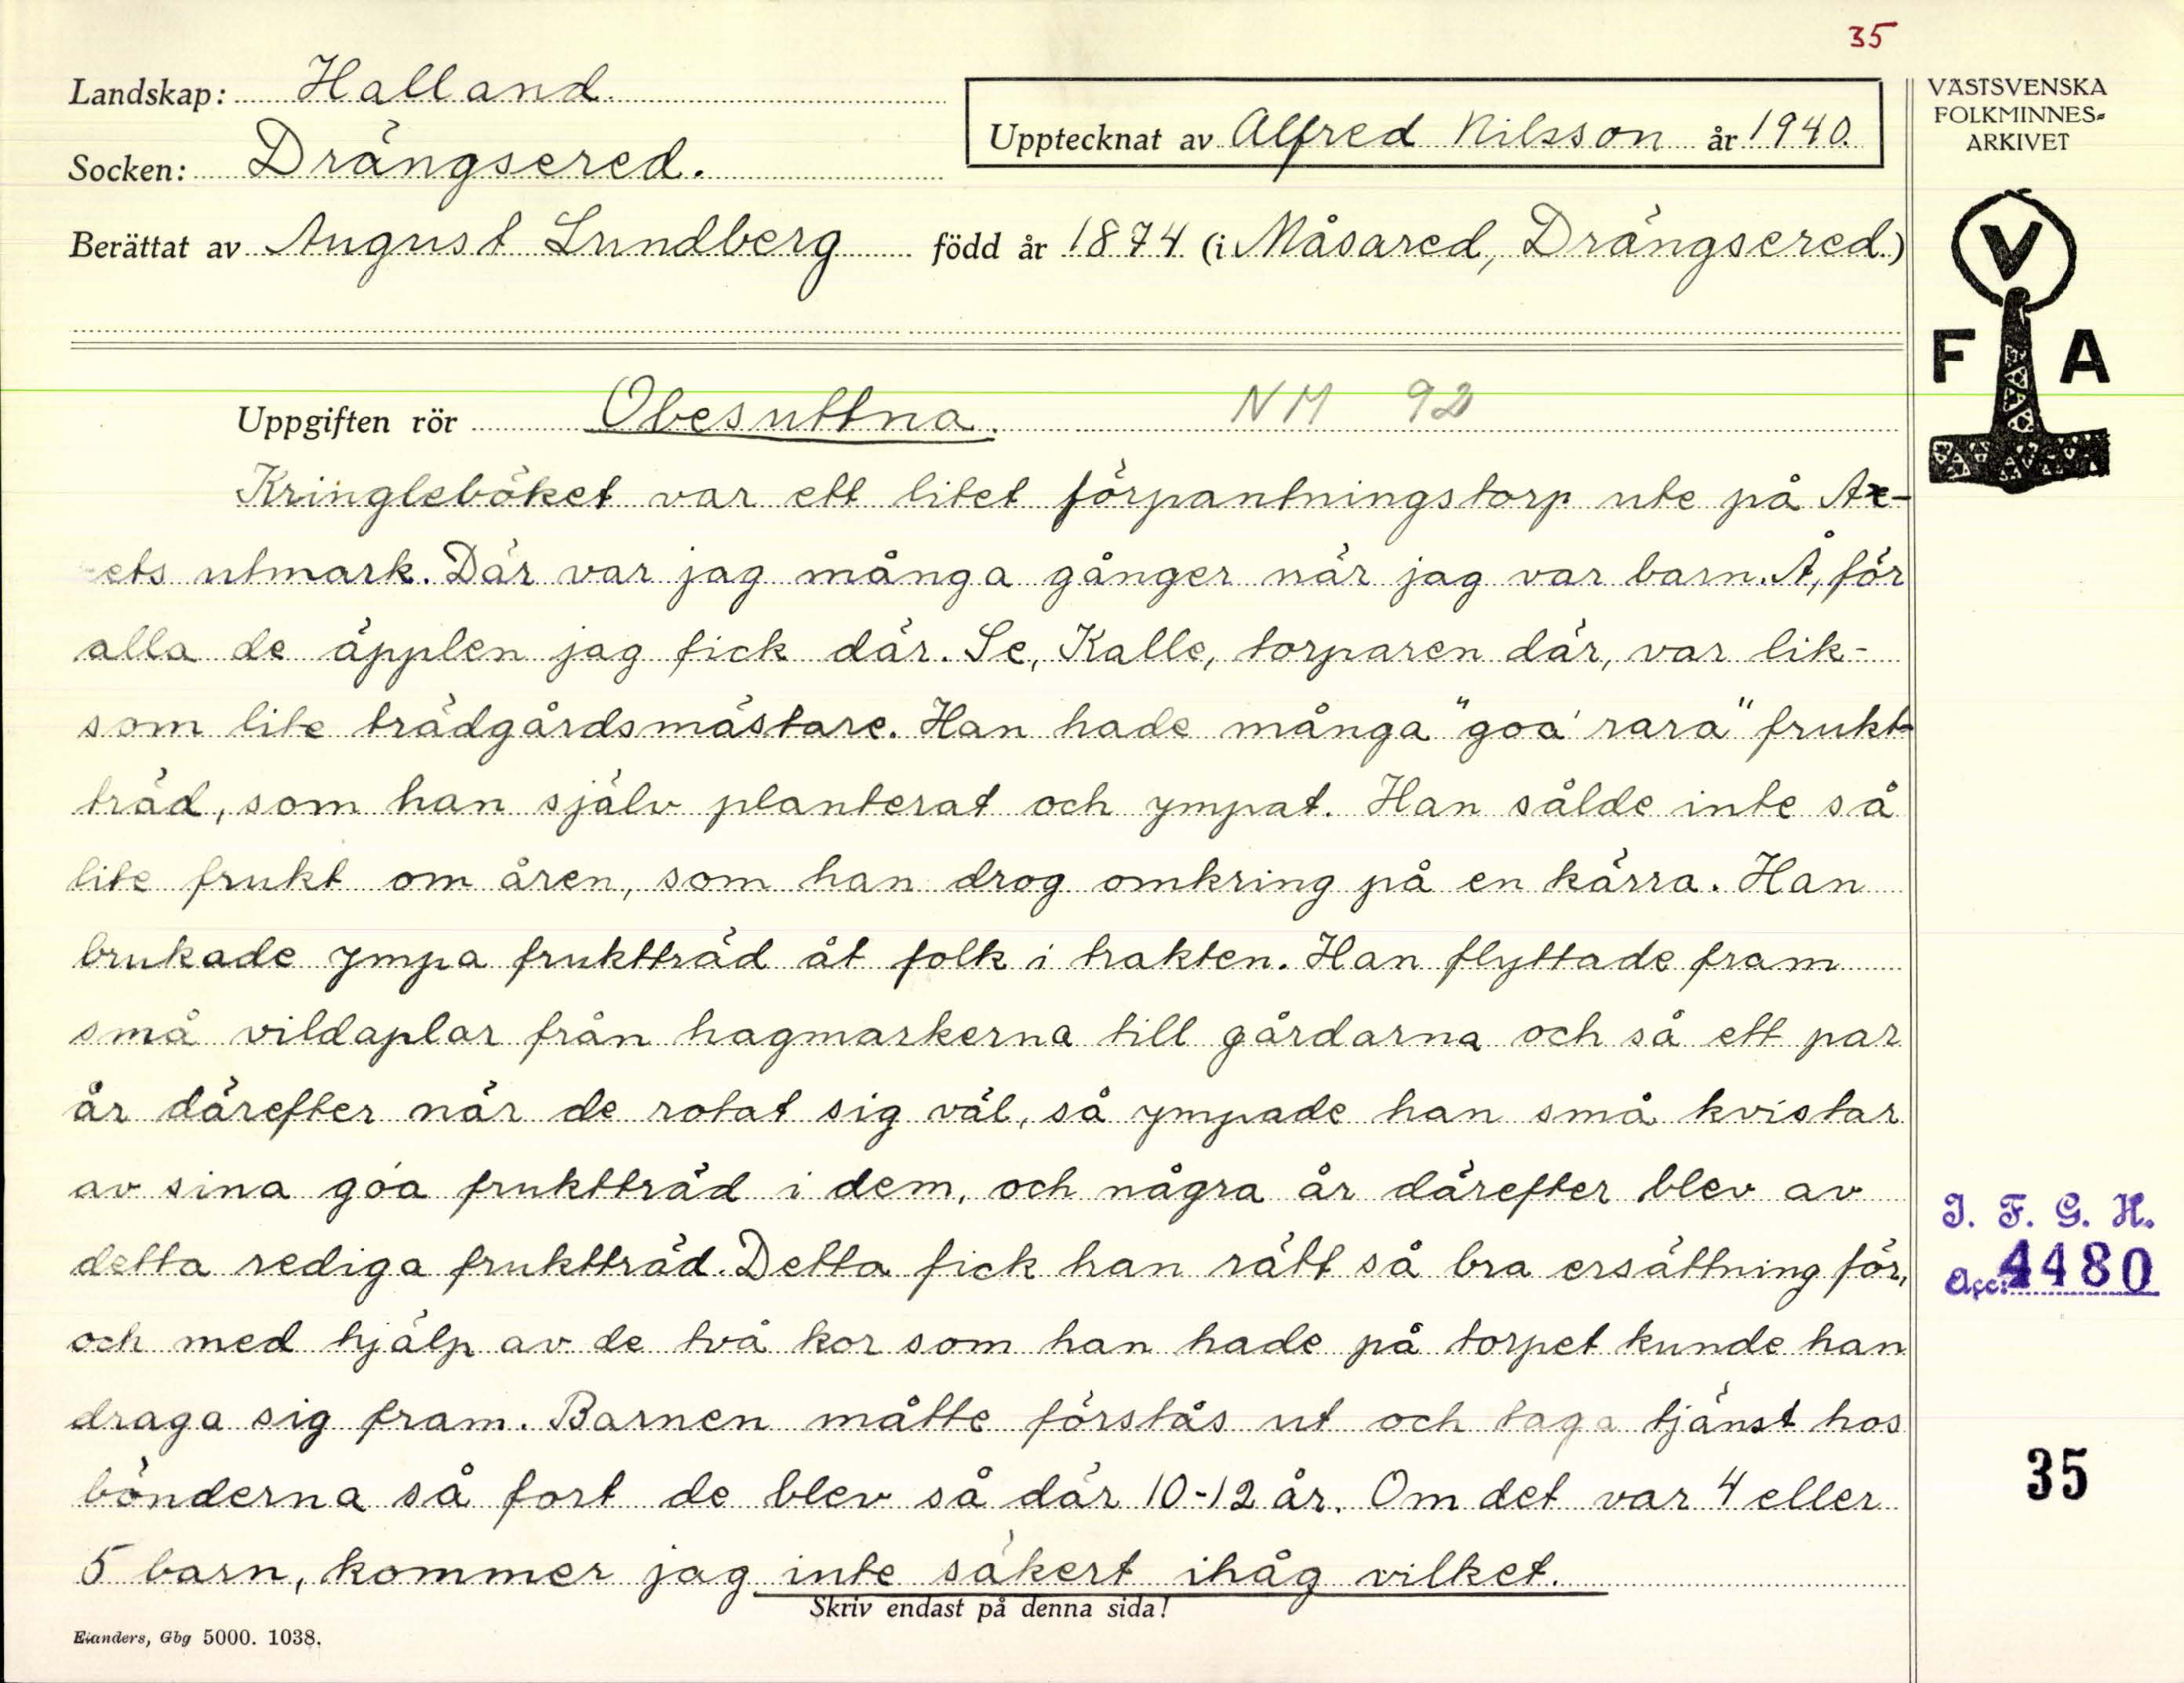 35
Landskap: Halland
Socken: Drängsered.
Upptecknat av Alfred Nilsson år 1940.
Berättat av August Lundberg född år 1874 (i Måsared, Drängsered.)
VÄSTSVENSKA
FOLKMINNES=
ARKIVET
V
F A
Uppgiften rör Obesuttna. NM 92
Kringleböket var ett litet förpantningstorp ute på
ets utmark. Där var jag många gånger när jag var barn. Å, för
alla de äpplen jag fick där. Se, Kalle, torparen där, var lik-
som lite trädgårdsmästare. Han hade många "goa' rara" frukt-
träd, som han själv planterat och ympat. Han sålde inte så
lite frukt om åren, som han drog omkring på en kärra. Han
brukade ympa fruktträd åt folk i trakten. Han flyttade fram
små vildaplar från hagmarkerna till gårdarna och så ett par
år därefter när de rotat sig väl, så ympade han små kvistar
av sina goa fruktträd i dem, och några år därefter blev av
detta rediga fruktträd. Detta fick han rätt så bra ersättning för,
och med hjälp av de två kor som han hade på torpet kunde han
draga sig fram. Barnen måtte förstås ut och taga tjänst hos
bönderna så fort de blev så där 10-12 år. Om det var 4 eller
5 barn, kommer jag inte säkert ihåg vilket.
Skriv endast på denna sida!
Elanders, Gbg 5000. 1038.
I. F. G. H.
Acc. 4480
35